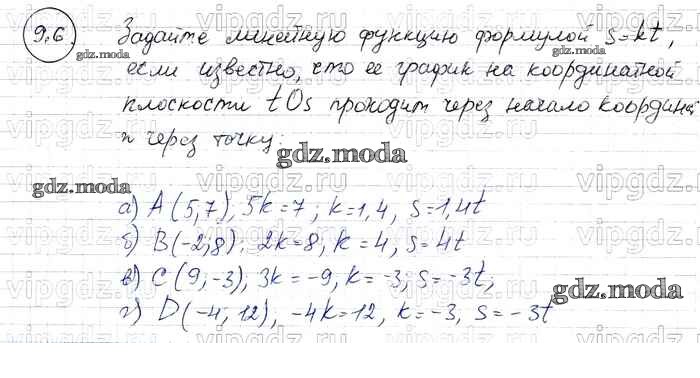 9.6 Задайте линейную функцию формулой s=kt,
если известно, что ее график на координатной
плоскости tOs проходит через начало координат
и через точку:
а) A(5,7), 5k=7; k=1,4, s=1,4t
б) B(-2;8); 2k=8, k=4, s=4t
в) C(9,-3), 3k=-9, k=-3; s=-3t;
г) D(-4; 12), -4k=12, k=-3, s=-3t
gdz.moda
gdz.moda
gdz.moda
gdz.moda
gdz.moda
vipgdz.ru